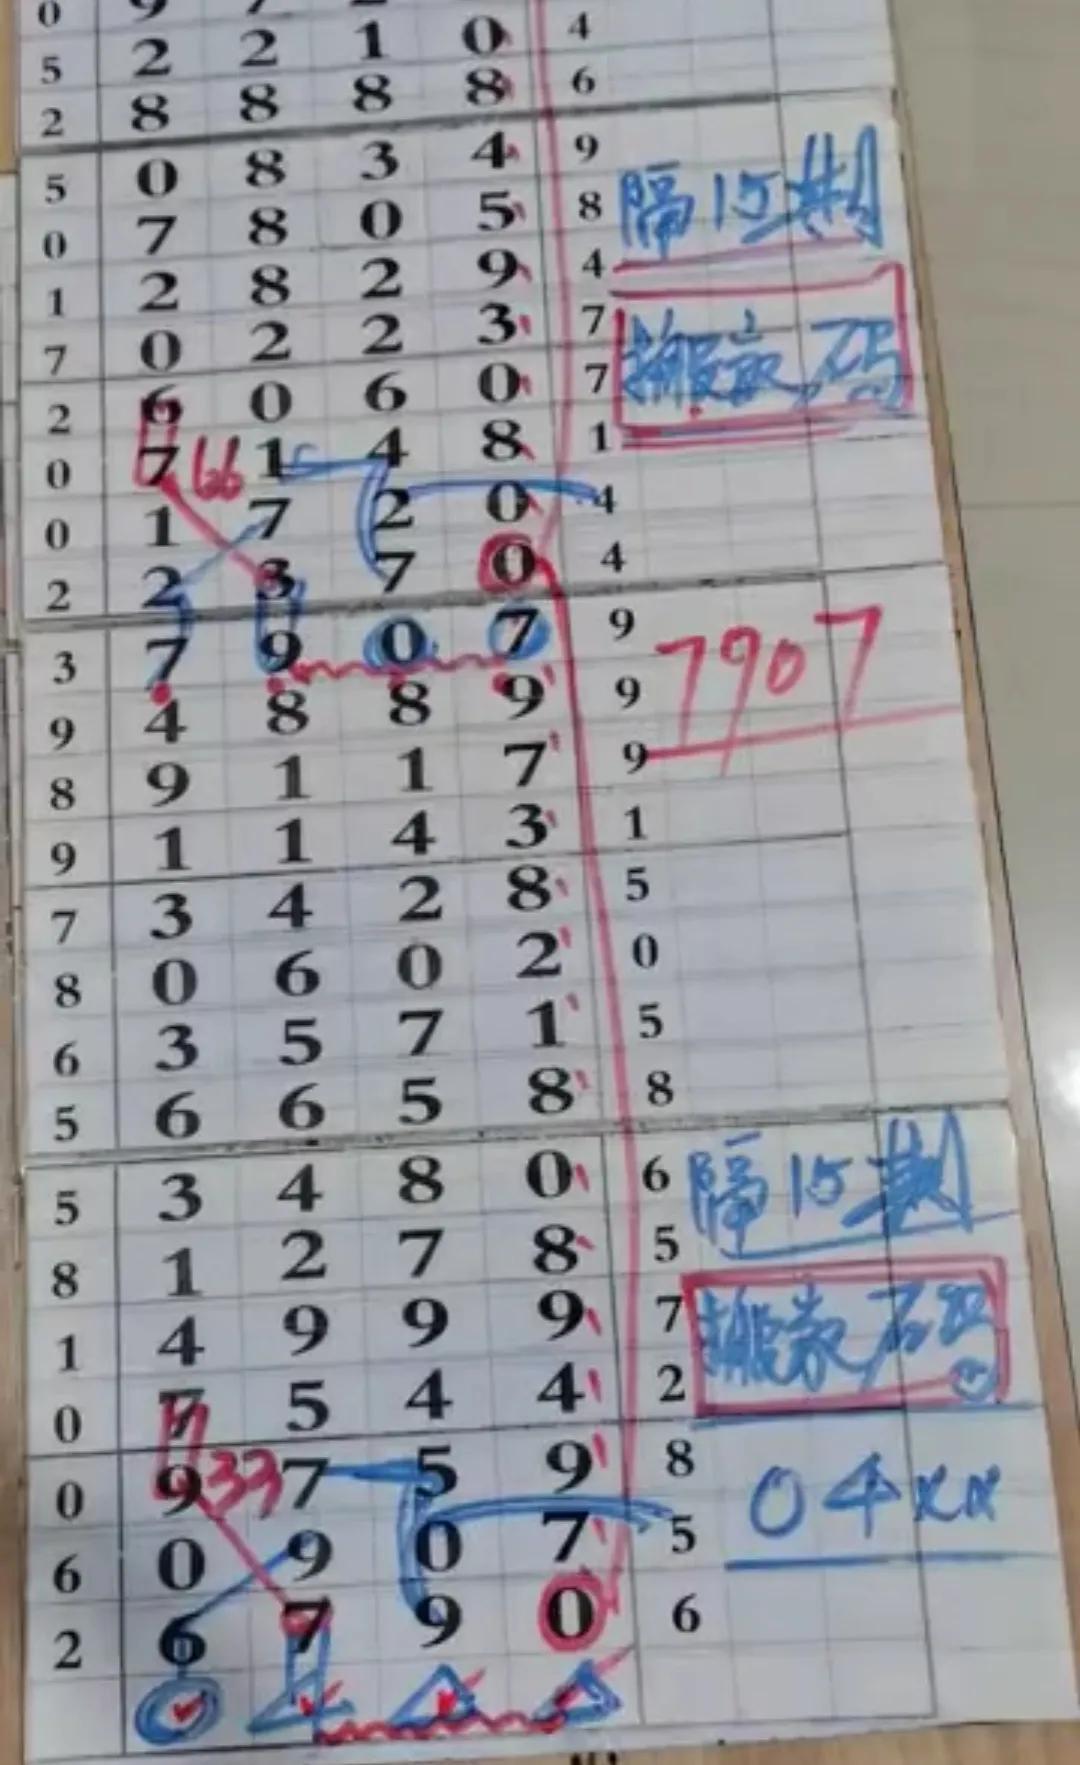 0 9 7
5 2 2 1 0 4
2 8 8 8 8 6
5 0 8 3 4 9
0 7 8 0 5 8 隔15期
1 2 8 2 9 4
7 0 2 2 3 7
2 6 0 6 0 7 搬家码
0 7 66 1 4 8 1
0 1 7 2 0 4
2 2 3 7 0 4
3 7 9 0 7 9 7907
9 4 8 8 9 9
8 9 1 1 7 9
9 1 1 4 3 1
7 3 4 2 8 5
8 0 6 0 2 0
6 3 5 7 1 5
5 6 6 5 8 8
5 3 4 8 0 6 隔15期
8 1 2 7 8 5
1 4 9 9 9 7 搬家码
0 7 5 4 4 2
0 9 33 7 5 9 8
6 0 9 0 7 5 04xx
2 6 7 9 0 6